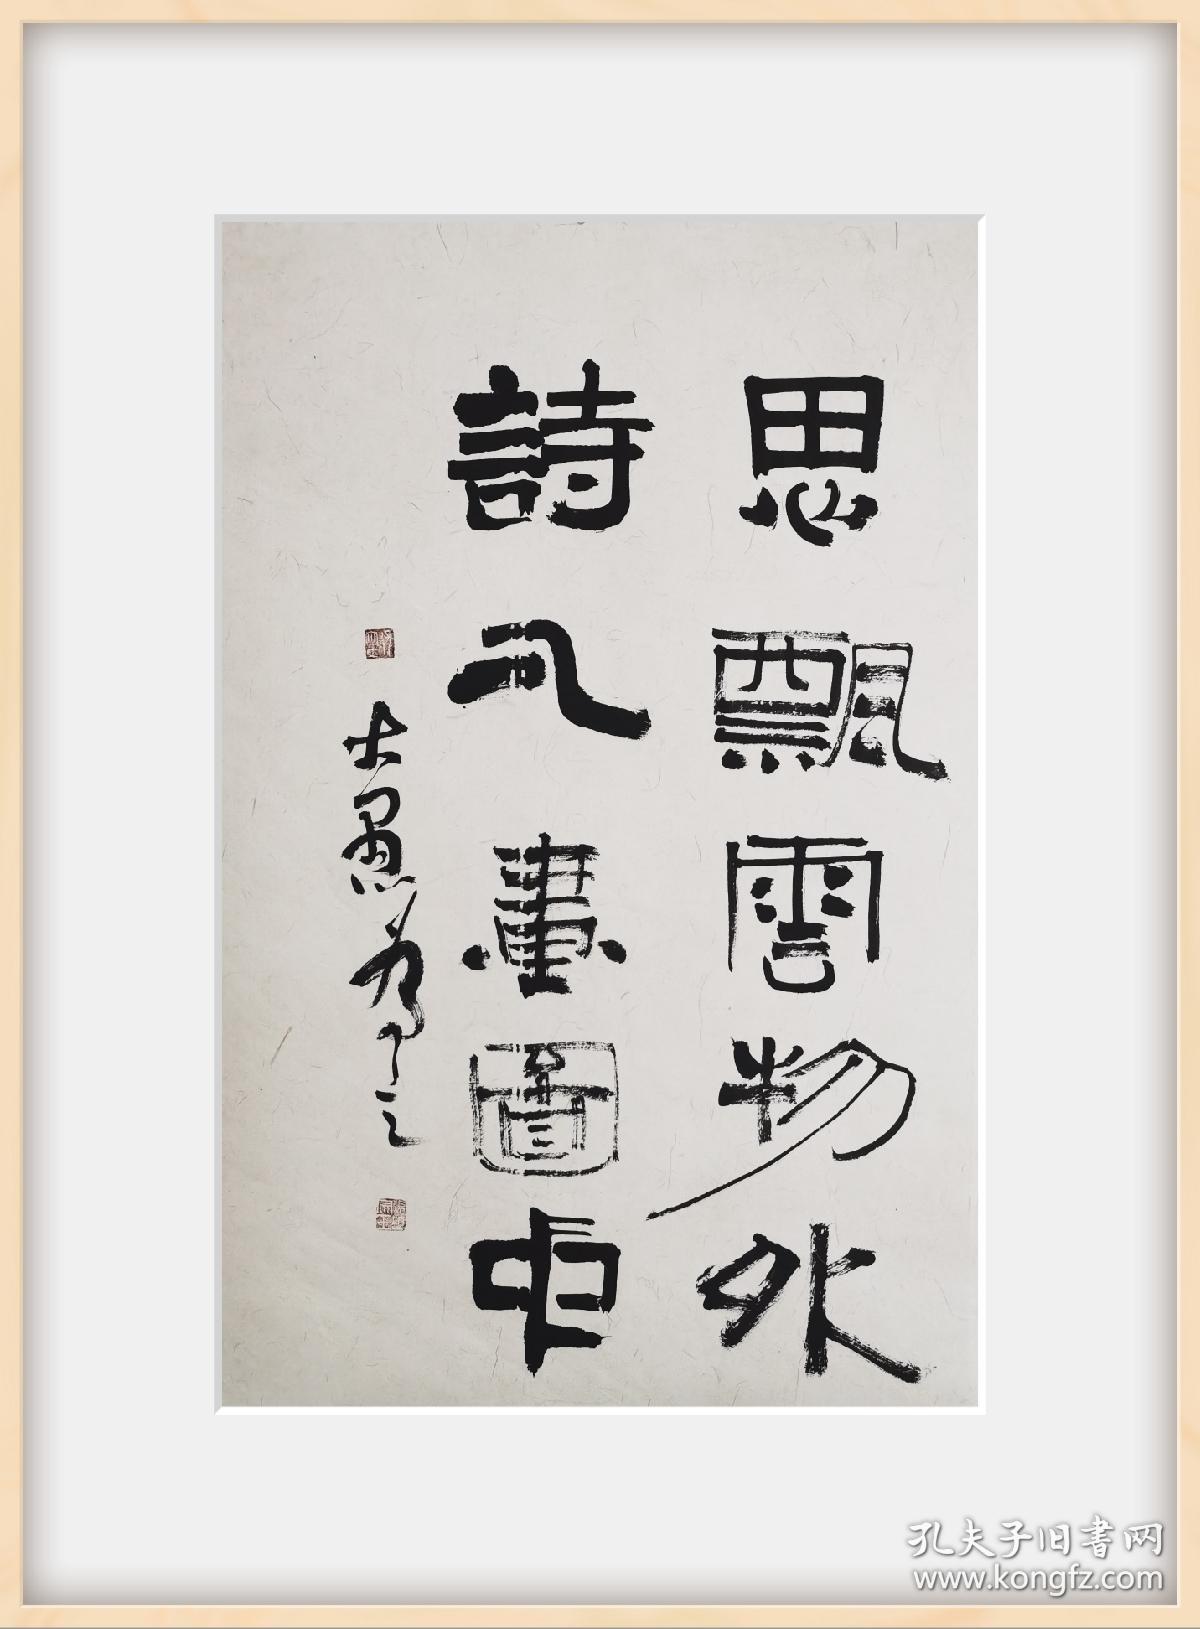 思飄雲物外
詩入畫圖中
大愚
孔夫子旧书网
www.kongfz.com